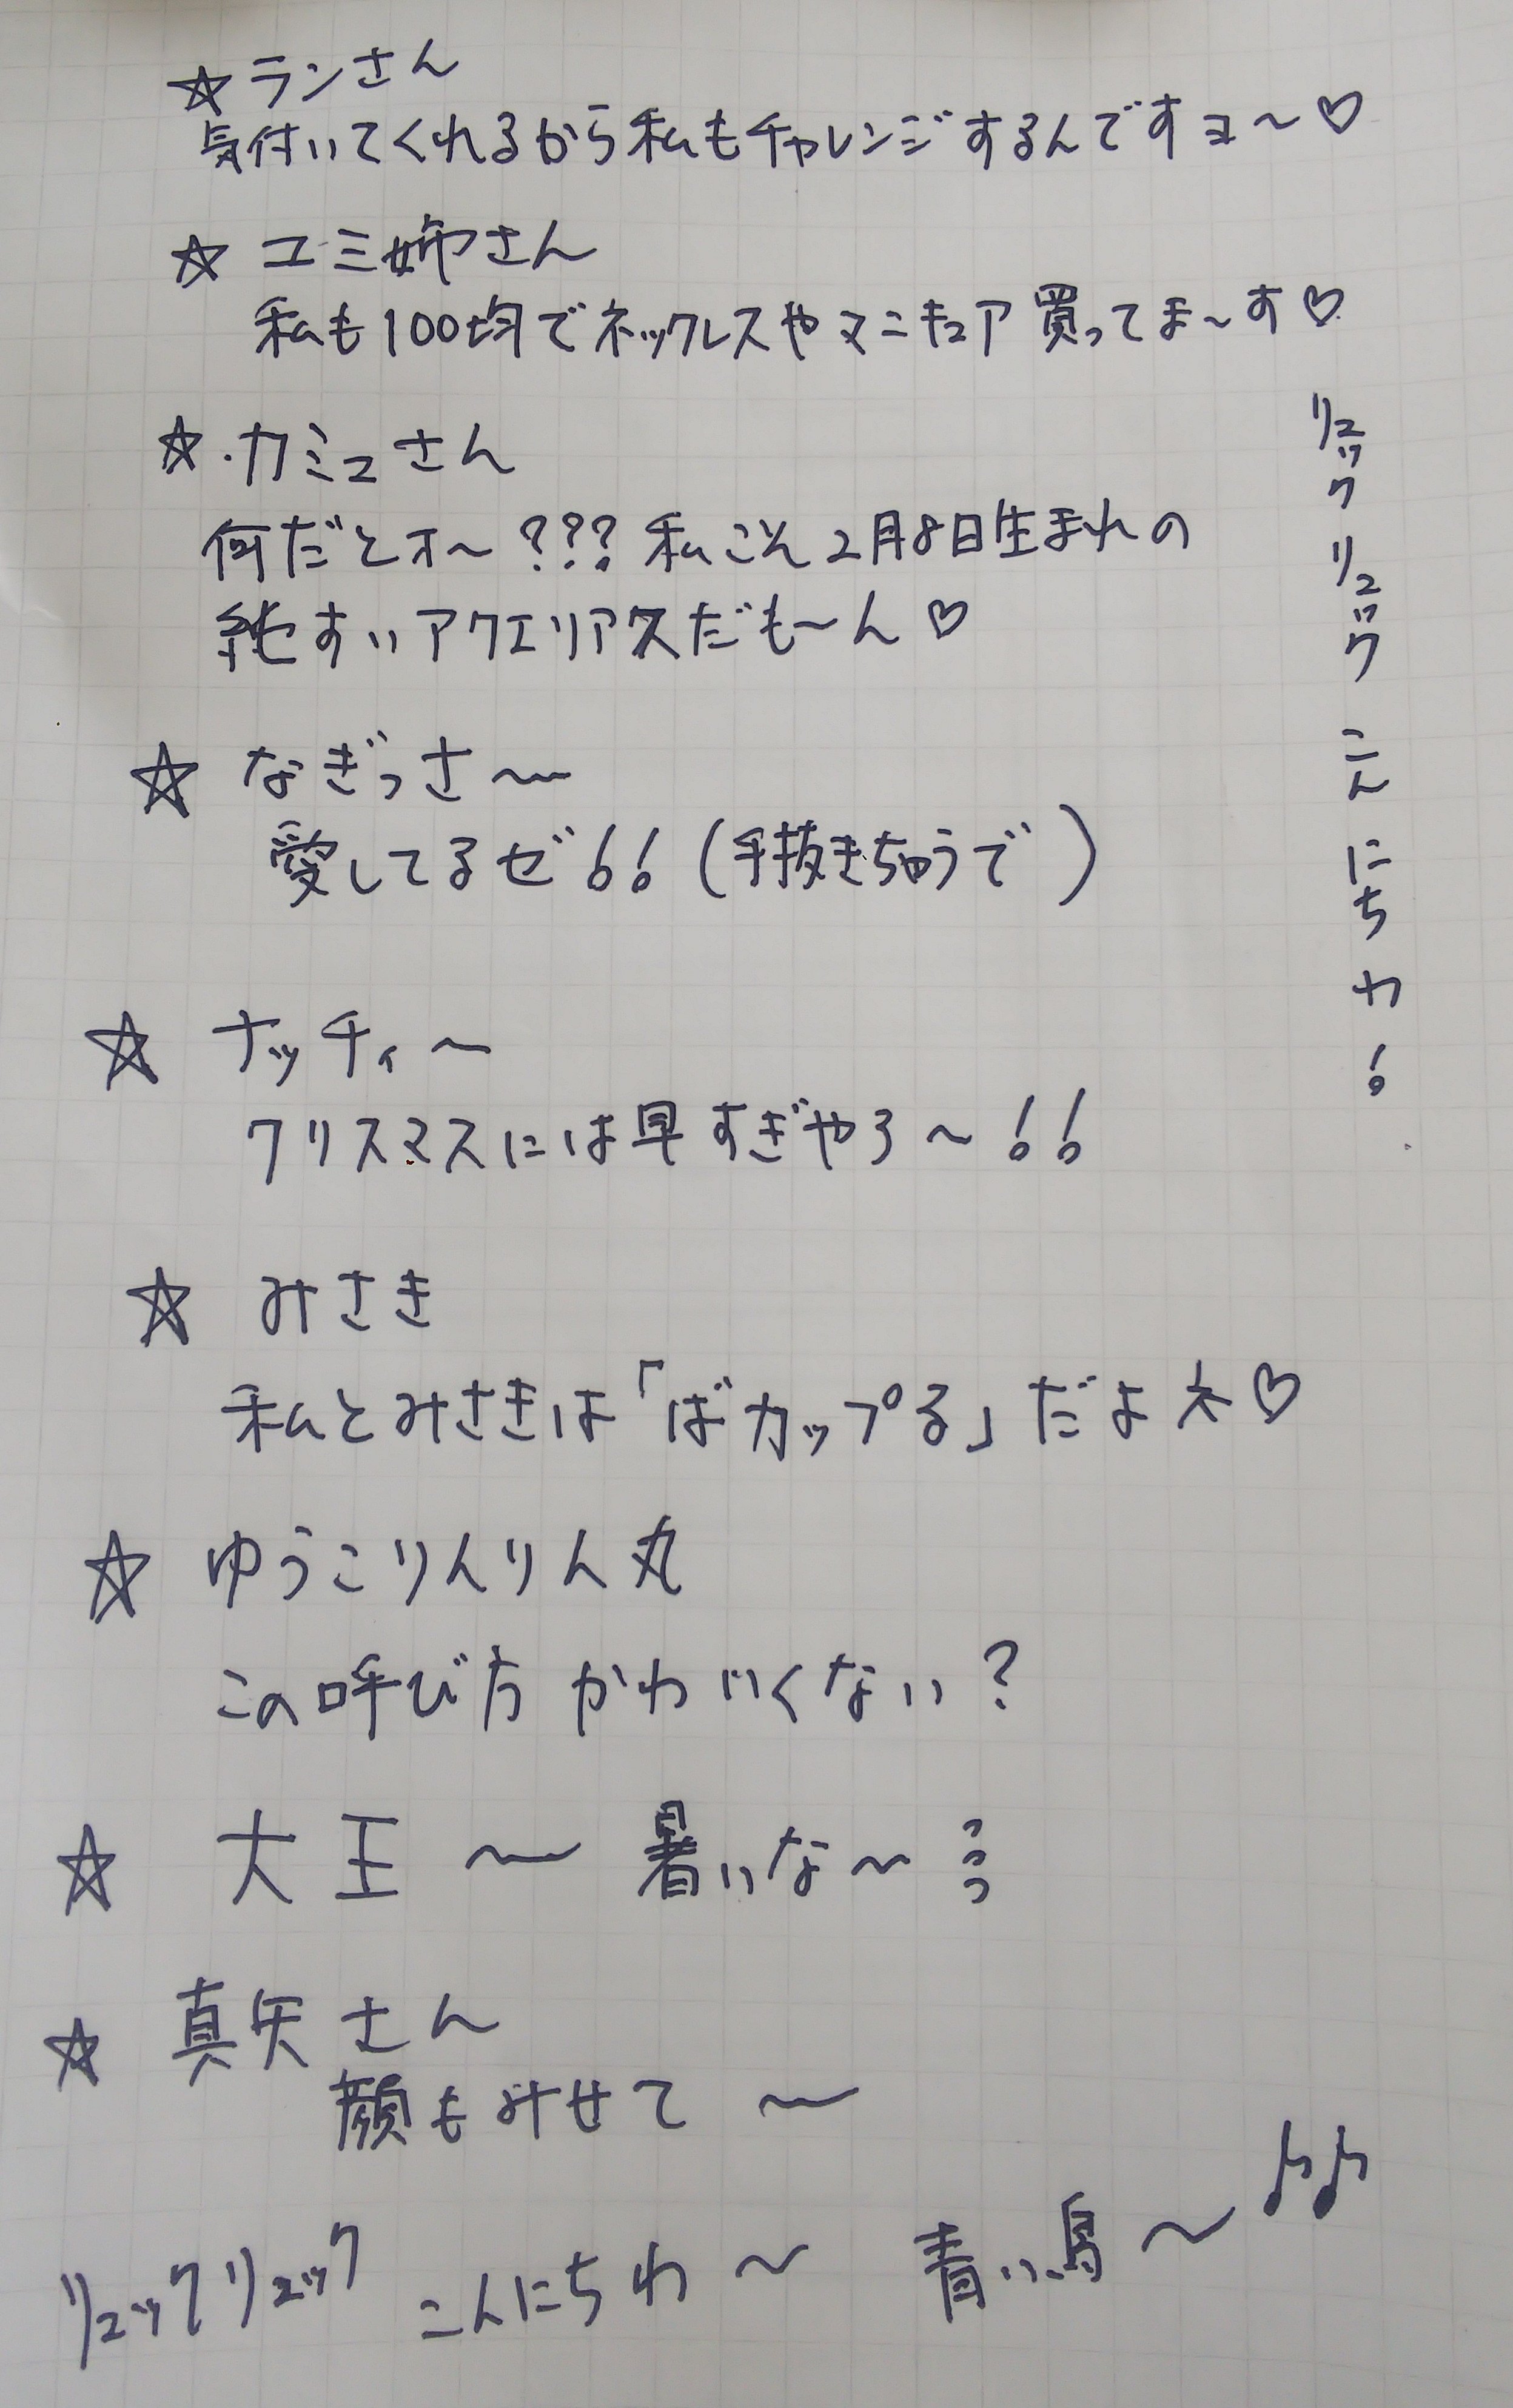 ☆ランさん
気付いてくれるから私もチャレンジするんですヨ〜♡
☆ユミ姉さん
私も100均でネックレスやマニキュア買ってま〜す♡
☆カミュさん
何だとオ〜???私こそ2月8日生まれの
純すいアクエリアスだも〜ん♡
☆なぎっさ〜
愛してるぜ!!(手抜きちゅうで)
☆ナッチィ〜
クリスマスには早すぎやろ〜!!
☆みさき
私とみさきは「ばカップる」だよネ♡
☆ゆうこりんりん丸
この呼び方かわいくない?
☆大王〜暑いな〜ううう
☆真矢さん
顔もみせて〜
リュックリュックこんにちわ〜青い鳥〜♪♪
リュックリュックこんにちわ!